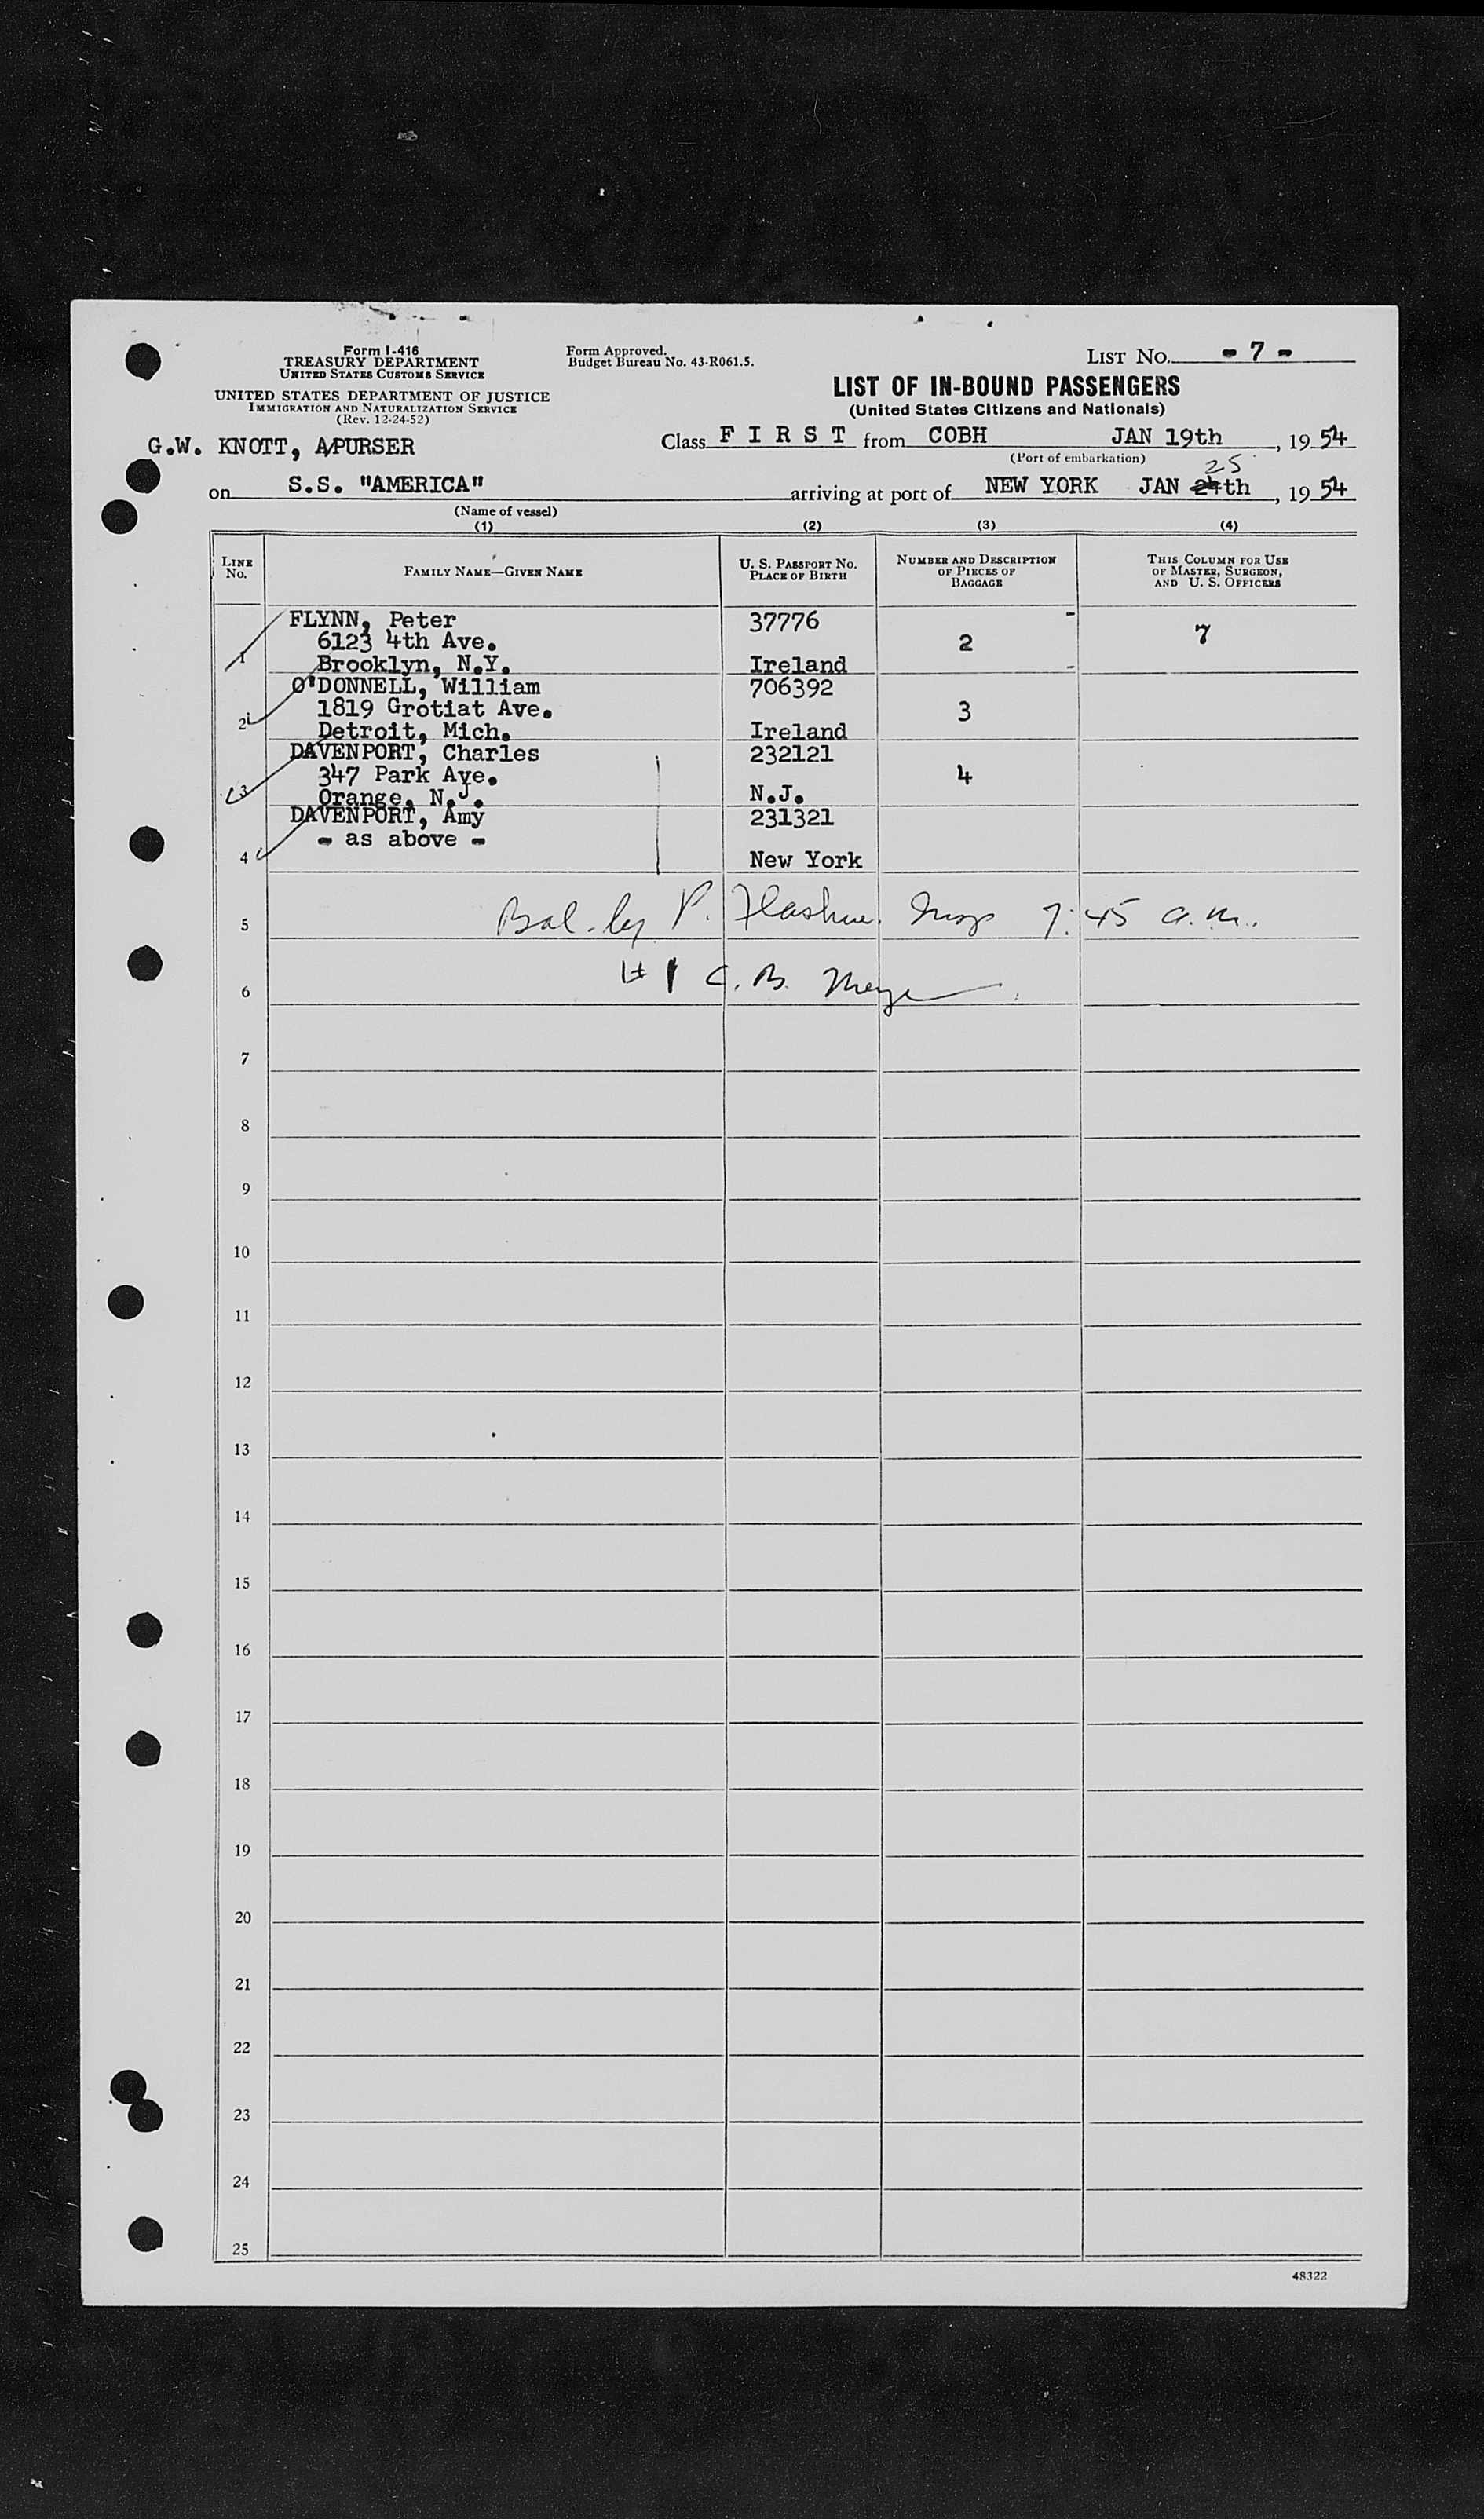 Form I-416
TREASURY DEPARTMENT
UNITED STATES CUSTOMS SERVICE
UNITED STATES DEPARTMENT OF JUSTICE
IMMIGRATION AND NATURALIZATION SERVICE
(Rev. 12-24-52)
Form Approved.
Budget Bureau No. 43-R061.5.
LIST No. - 7 -
LIST OF IN-BOUND PASSENGERS
(United States Citizens and Nationals)
G.W. KNOTT, A/PURSER
Class F I R S T from COBH JAN 19th, 19 54
(Port of embarkation)
25
on S.S. "AMERICA" arriving at port of NEW YORK JAN 24th, 19 54
(Name of vessel)
(1) (2) (3) (4)
LINE No. FAMILY NAME—GIVEN NAME U. S. PASSPORT No. PLACE OF BIRTH NUMBER AND DESCRIPTION OF PIECES OF BAGGAGE THIS COLUMN FOR USE OF MASTER, SURGEON, AND U. S. OFFICERS
FLYNN, Peter 37776 -
6123 4th Ave. 2 7
1 Brooklyn, N.Y. Ireland -
O'DONNELL, William 706392
1819 Grotiat Ave. 3
2 Detroit, Mich. Ireland
DAVENPORT, Charles 232121
347 Park Ave. 4
3 Orange, N.J. N.J.
DAVENPORT, Amy 231321
- as above -
4 New York
5 Bal. by P. 7:45 a.m.
6 # 1 C. B.
7
8
9
10
11
12
13
14
15
16
17
18
19
20
21
22
23
24
25
48322